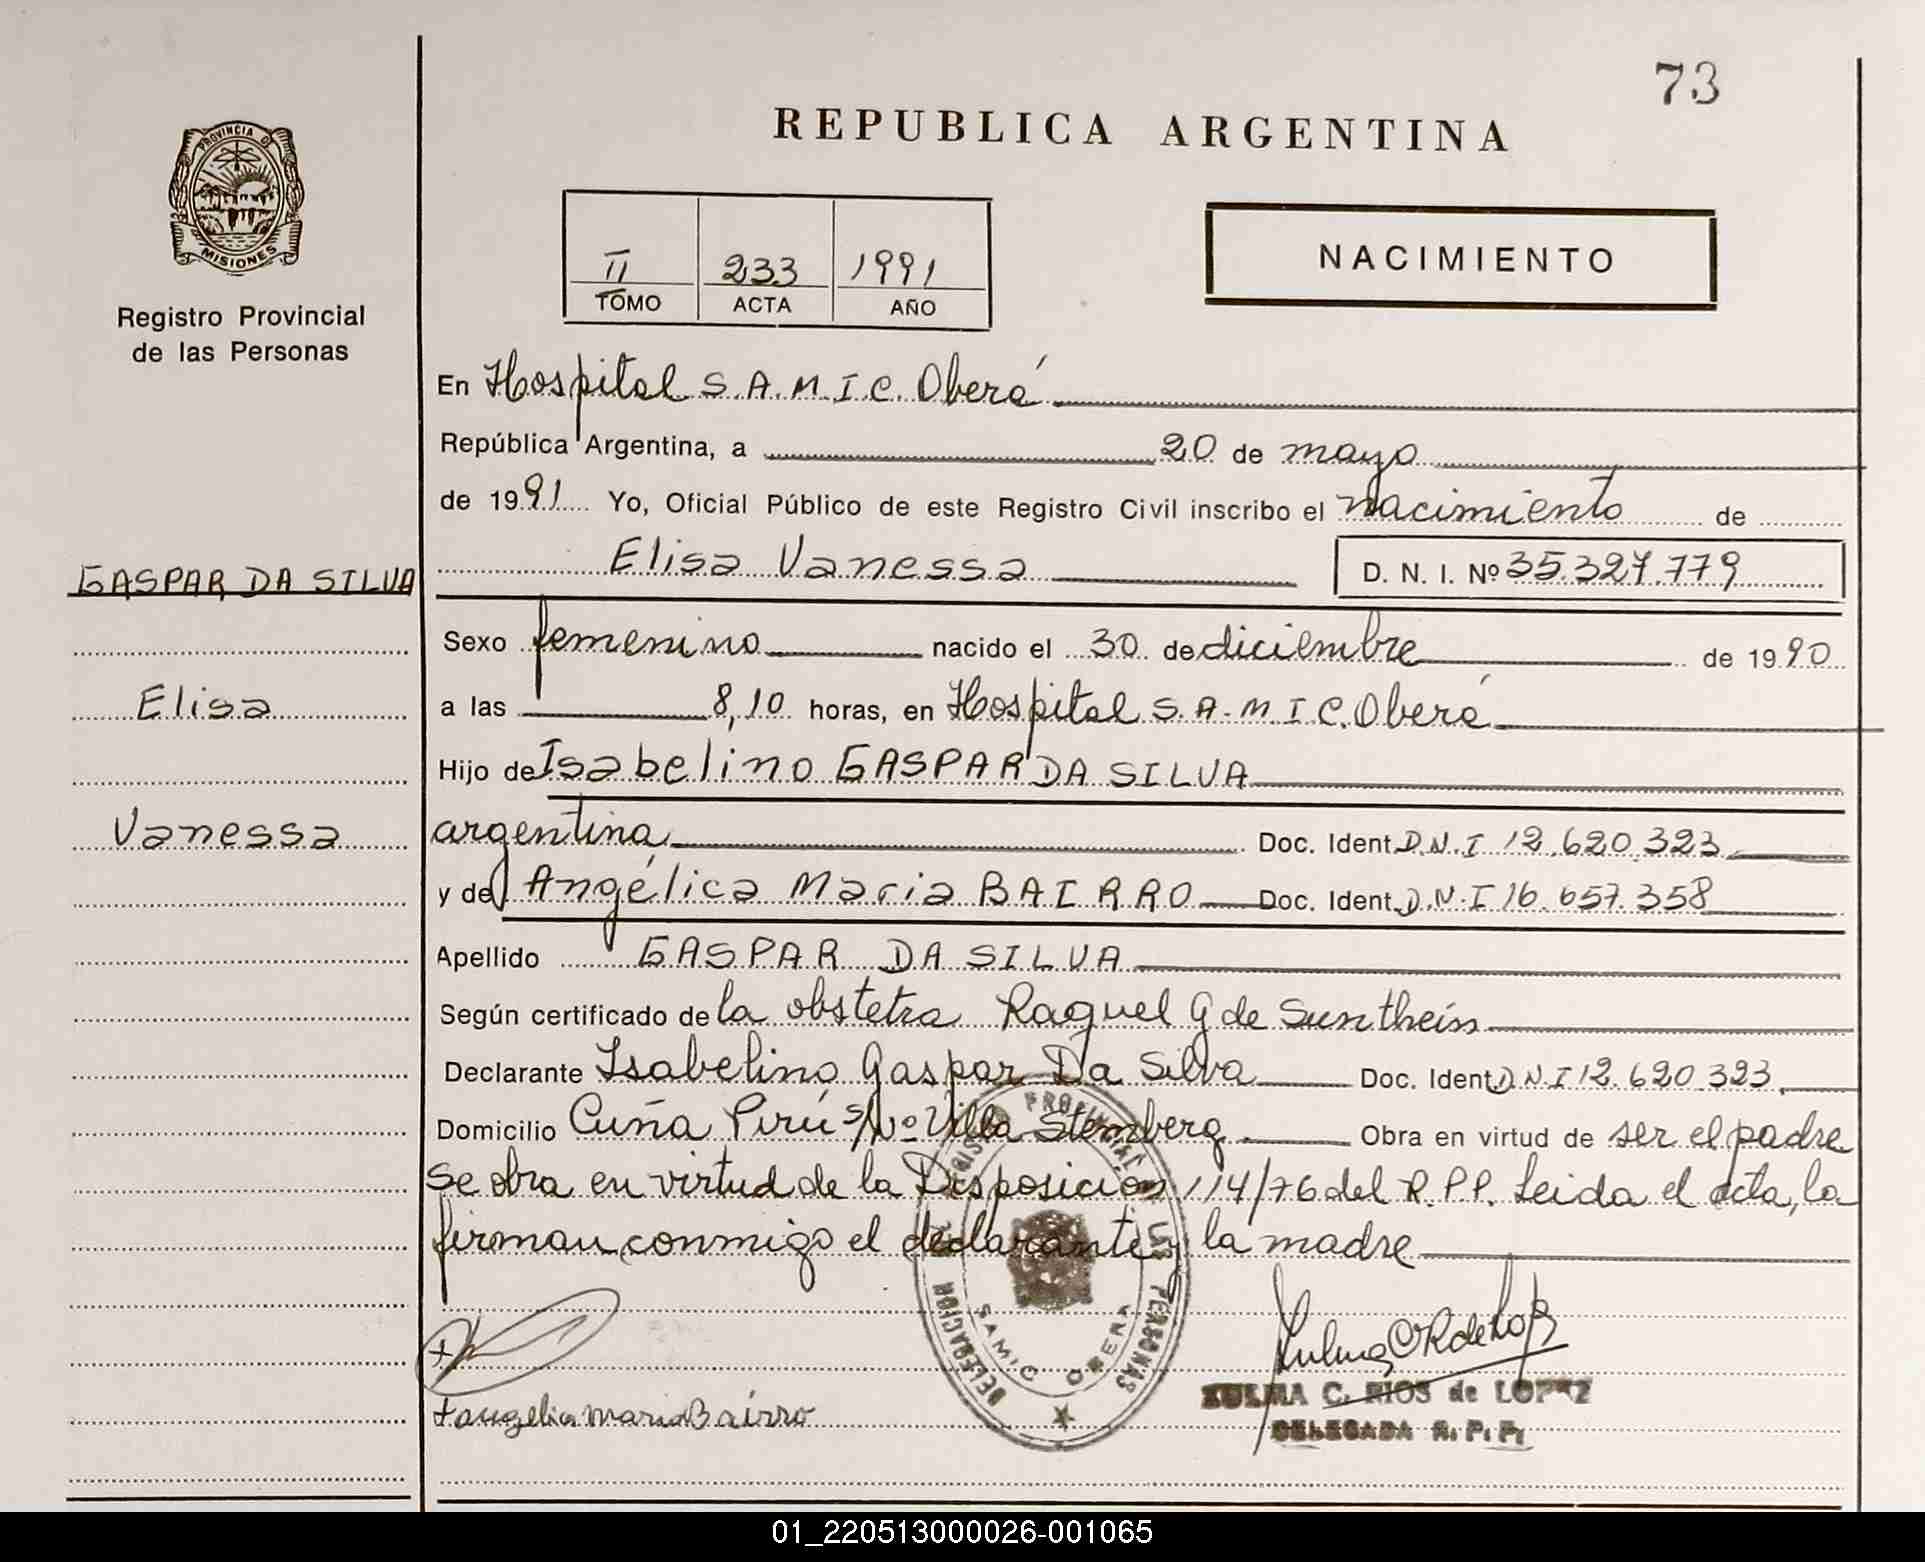 73
REPUBLICA ARGENTINA
PROVINCIA D
MISIONES
Registro Provincial
de las Personas
II 233 1991
TOMO ACTA AÑO
NACIMIENTO
En Hospital S.A.M.I.C. Oberá
República Argentina, a 20 de mayo
de 1991 Yo, Oficial Público de este Registro Civil inscribo el nacimiento de
GASPAR DA SILVA
Elisa
Vanessa
Elisa Vanessa D. N. I. Nº 35.327.779
Sexo femenino nacido el 30 de diciembre de 1990
a las 8,10 horas, en Hospital S.A.M.I.C. Oberá
Hijo de Isabelino GASPAR DA SILVA
argentina Doc. Ident. D.N.I 12.620.323
y de Angélica Maria BAIRRO Doc. Ident. D.N.I 16.657.358
Apellido GASPAR DA SILVA
Según certificado de la obstetra Raquel G de Suntheim
Declarante Isabelino Gaspar Da Silva Doc. Ident D.N.I 12.620.323
Domicilio Cuña Pirú s/Nº Villa Stemberg Obra en virtud de ser el padre
se obra en virtud de la Disposición 114/76 del R.P.P. Leida el acta, la
firman conmigo el declarante y la madre
REGISTRO PROVINCIAL DE LAS PERSONAS
DELEGACION
SAMIC OBERA
angelica maria Bairro
Zulma C R de Lopez
ZULMA C. RIOS de LOPEZ
DELEGADA R. P. P.
01_220513000026-001065